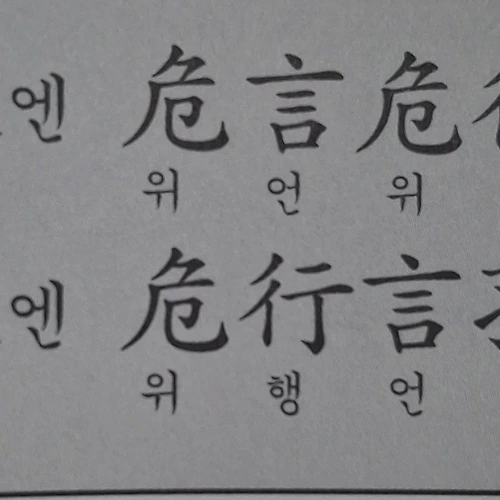 엔 危言危
위 언 위
엔 危行言
위 행 언